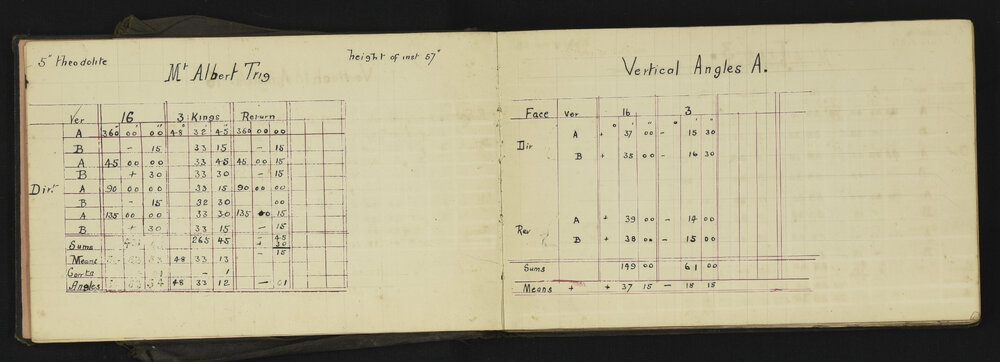 5" theodolite
height of inst 57"
Mt Albert Trig
Ver 16 3 Kings Return
A 360° 00' 00" 48° 32' 45" 360 00 00
B - 15 33 15 - 15
A 45 00 00 33 45 45 00 15
B + 30 33 30 - 15
Dir.t A 90 00 00 33 15 90 00 00
B - 15 32 30 00
A 135 00 00 33 30 135 00 15
B + 30 33 15 - 15
Sums 265 45 - 45
30
Means 48 33 13 - 15
Corrts 1 - 1
Angles 48 33 12 - 01
Vertical Angles A.
Face Ver 16 3
Dir A + 37 00 - 15 30
B + 35 00 - 16 30
Rev A + 39 00 - 14 00
B + 38 00 - 15 00
Sums 149 00 61 00
Means + + 37 15 - 18 15